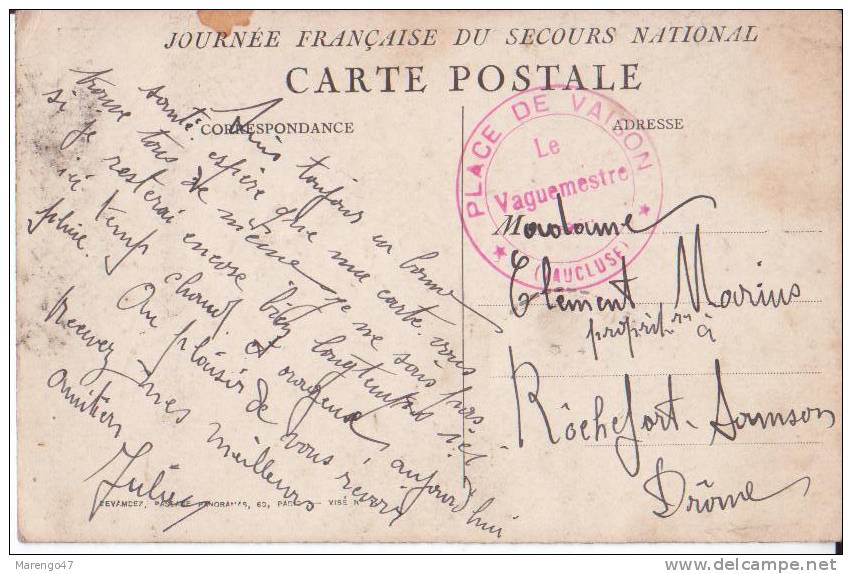 JOURNÉE FRANÇAISE DU SECOURS NATIONAL
CARTE POSTALE
CORRESPONDANCE
ADRESSE
Suis toujours en bonne
santé espère que ma carte vous
trouve tous de même je ne sais pas
si je resterai encore bien longtemps ici
ici temp chaud et orageux aujourd'hui
pluie.
Au plaisir de vous revoir
recevez mes meilleurs
amitiés
Julien
PLACE DE VAISON
Le
Vaguemestre
(VAUCLUSE)
Madame
Clément Marius
proprit re à
Rôchefort-Samson
Drôme
DEVAMBEZ, PASSAGE PANORAMAS, 60, PARIS — VISÉ N
Marengo47
delcampe.net